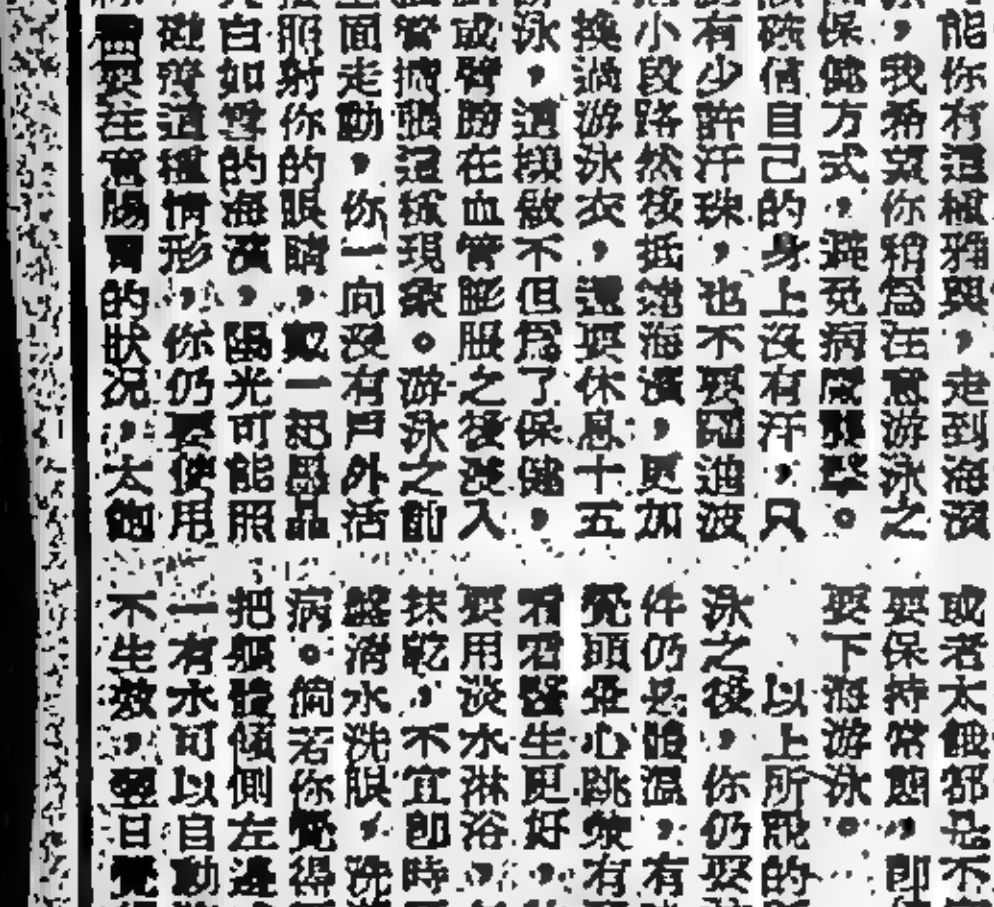 能你有這種雅興，走到海濱
，我希望你稍為注意游泳之
保健方式，避免病魔襲擊。
確信自己的身上沒有汗，只
有少許汗珠，也不要
小段路然後抵達海濱，更加
換過游泳衣，還要休息十五
泳，這樣做不但為了保健，
或臂膀在血管膨脹之後浸入
管這種現象。游泳之前
面走動，你一向沒有戶外活
照射你的眼睛，戴一墨晶
白如雪的海濱，陽光可能照
這種情形，你仍要使用
要注意腸胃的狀況，太飽
或者太餓都是不
要保持常態，即
要下海游泳。
以上所說的
泳之後，你仍要
件仍體溫，有
覺頭暈心跳有
看醫生更好，
要用淡水淋浴，
抹乾，不宜即時
盤清水洗眼，洗
病。倘若你覺得
把軀體傾側左邊
有水可以自動
不生效，翌日覺